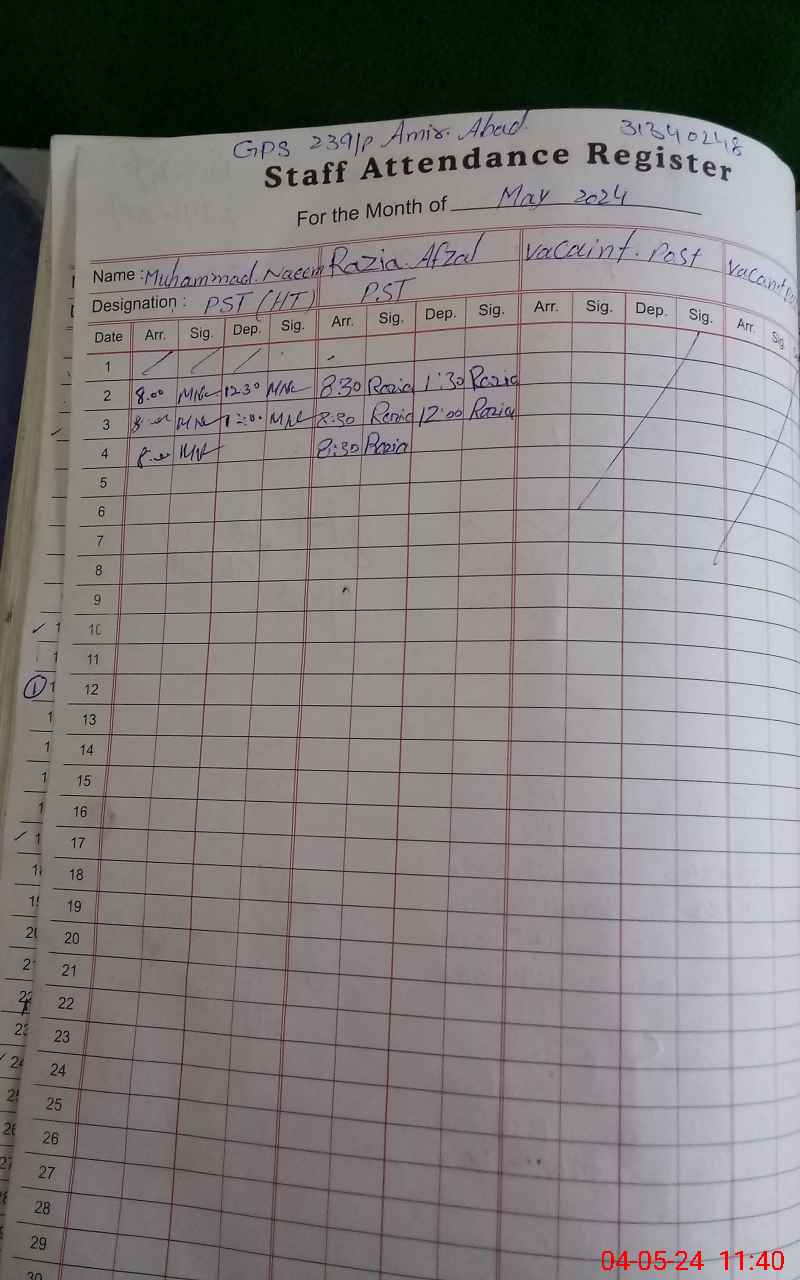 GPS 239/P Amir. Abad 31340248
Staff Attendance Register
For the Month of May 2024
Name : Muhammad. Naeem Razia. Afzal Vacaint. Post
Designation : PST (HT) PST
Date Arr. Sig. Dep. Sig. Arr. Sig. Dep. Sig. Arr. Sig. Dep. Sig. Arr. Sig.
1
2 8.00 12:30 8:30 Razia 1:30 Razia
3 12:00 8:30 Razia 12:00 Razia
4 8:30 Razia
5
6
7
8
9
10
11
12
13
14
15
16
17
18
19
20
21
22
23
24
25
26
27
28
29
30
04-05-24 11:40